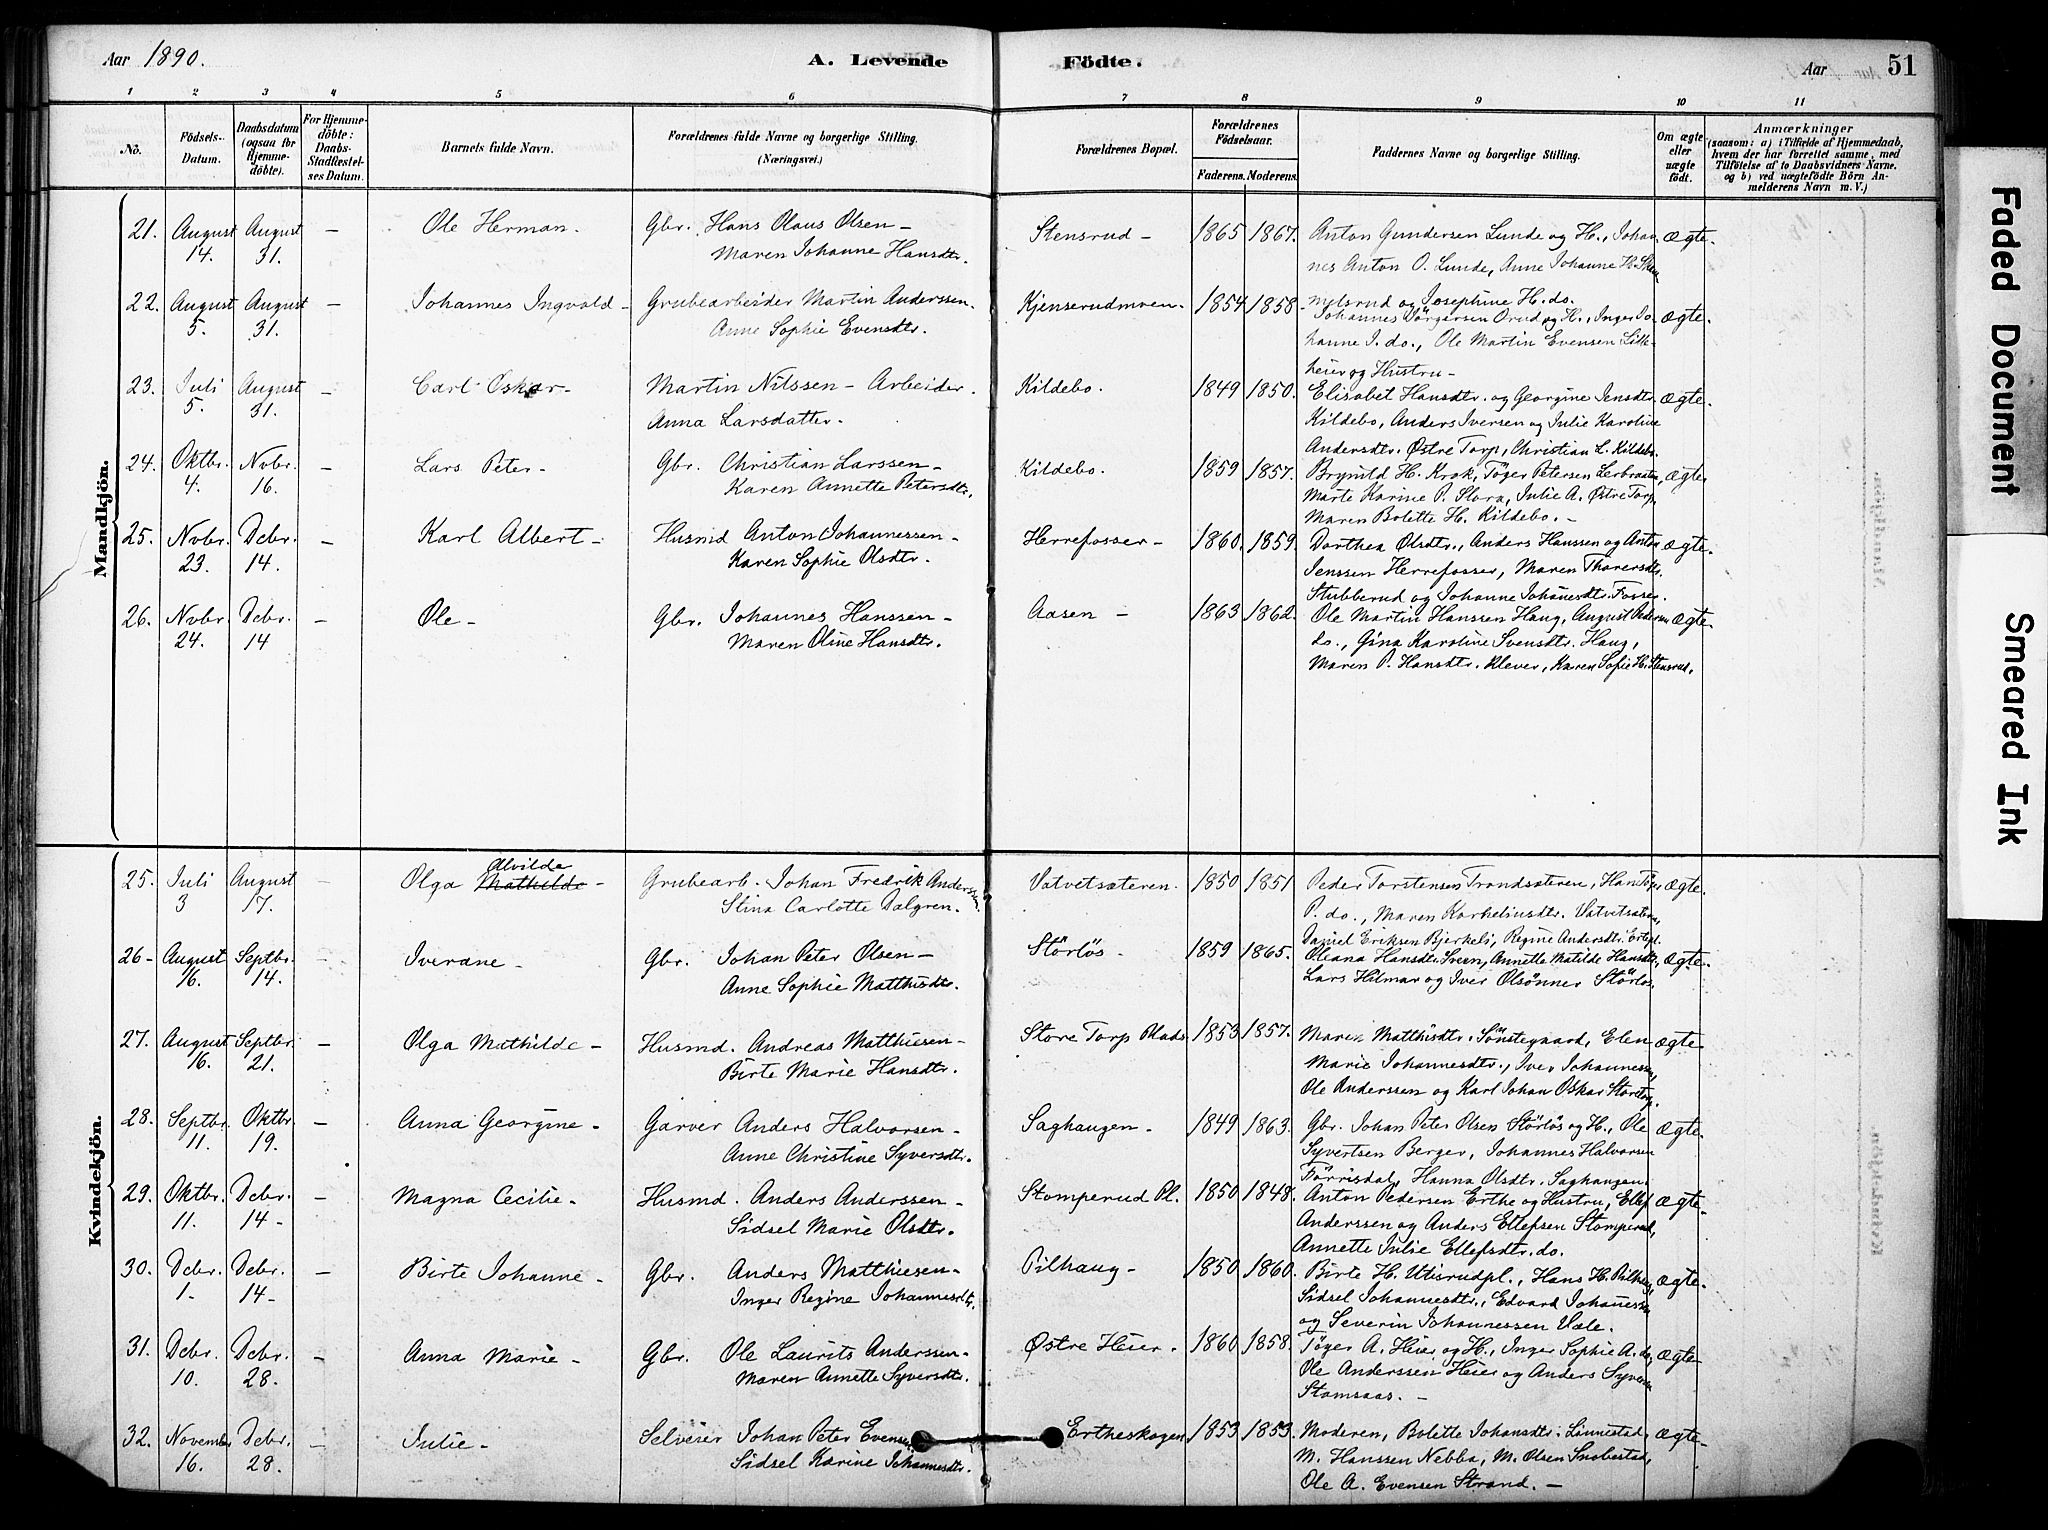 Aar 1890. A. Levende Födte. Aar 51
1 2 3 4 5 6 7 8 9 10 11
No. Födsels-Datum. Daabsdatum (ogsaa for Hjemmedöbte). For Hjemmedöbte: Daabs-Stadfæstelses Datum. Barnets fulde Navn. Forældrenes fulde Navne og borgerlige Stilling. (Næringsvei.) Forældrenes Bopæl. Forældrenes Födselsaar. Faderens. Moderens. Faddernes Navne og borgerlige Stilling. Om ægte eller uægte födt. Anmærkninger (saasom: a) i Tilfælde af Hjemmedaab, hvem der har forrettet samme, med Tilföielse af to Daabsvidners Navne. og b) ved uægtefödte Börn Anmelderens Navn m. V.)
Mandkjön.
21. August 14. August 31. - Ole Herman - Gbr. Hans Olaus Olsen - Stensrud - 1865 1867. Anton Gundersen Lunde og H., Johan- ægte.
Maren Johanne Hansdtr. nes Anton O. Lunde, Anne Johanne H. Skin
22. August 5. August 31. - Johannes Ingvald - Grubearbeider Martin Anderssen. Kjenserudmoen - 1854 1858 - melsrud og Josephine H. do. ægte.
Anne Sophie Evensdtr. Johannes Jörgensen Orud og H., Inger Jo
hanne J. do., Ole Martin Evensen Lille-
heier og Hustru -
23. Juli 5. August 31. - Carl Oskar - Martin Nilssen - Arbeider. Kildebo. 1849 1850. Elisabet Hansdtr. og Georgine Jensdtr. ægte.
Anna Larsdatter. Kildebo, Anders Iversen og Julie Karoline
Andersdtr. Østre Torp, Christian L. Kildebo.
24. Oktbr. 4. Nvbr. 16. - Lars Peter - Gbr. Christian Larssen - Kildebo. 1859 1857. Brynild H. Krok, Töger Petersen Lerbraaten, ægte.
Karen Annette Petersdtr. Marte Karine P. Slora, Julie A. Østre Torp,
Maren Bolette H. Kildebo. -
25. Nvbr. 23. Dcbr. 14. - Karl Albert - Husmd Anton Johannessen - Herrefosser - 1860. 1859. Dorthea Olsdtr., Anders Hanssen og Anton ægte.
Karen Sophie Olsdtr. Jenssen Herrefosser, Maren Thorersdtr.
Stubberud og Johanne Johanesdtr. Fosser.
26. Nvbr. 24. Dcbr. 14 - Ole - Gbr. Johannes Hanssen - Aasen - 1863 1862. Ole Martin Hanssen Haug, August Pedersen ægte.
Maren Oline Hansdtr. do., Gina Karoline Svensdtr. Haug,
Maren P. Hansdtr. Klever, Karen Sofie H. Stensrud.
Kvindekjön.
25. Juli 3 August 17. - Olga Alvilde Mathilde - Grubearb. Johan Fredrik Anderssen. Vatvetsæteren. 1850 1851 Peder Torstensen Trandsæteren, Han Töger ægte.
Stina Carlotte Dalgren. P. do., Maren Korneliusdtr. Vatvetsæteren,
Daniel Eriksen Bjerkeli, Regine Andersdtr. Ertepl.
26 - August 16. Septbr. 14. - Iverane - Gbr. Johan Peter Olsen - Störlös - 1859 1865. Oleana Hansdtr. Sveen, Annette Matilde Hansdtr., ægte.
Anne Sophie Matthisdtr. Lars Hilmar og Iver Olsönner Störlös.
27. August 16. Septbr. 21. - Olga Mathilde - Husmd. Andreas Matthiesen - Store Torp Plads 1853 1857. Maren Matthisdtr. Sönstegaard, Elen ægte.
Birte Marie Hansdtr. Marie Johannesdtr., Iver Johannessen,
Ole Anderssen og Karl Johan Oskar Storetorp.
28. Septbr. 11. Oktbr. 19. - Anna Georgine - Garver Anders Halvorsen - Saghaugen - 1849 1863. Gbr. Johan Peter Olsen Störlös og H., Ole ægte.
Anne Christine Syversdtr. Syvertsen Berger, Johannes Halvorsen
Förrisdal, Hanna Olsdtr. Saghaugen.
29. Oktbr. 11. Dcbr. 14 - - Magna Cecilie - Husmd. Anders Anderssen - Stomperud Pl. 1850 1848. Anton Pedersen Erthe og Hustru, Ellef ægte.
Sidsel Marie Olsdtr. Anderssen og Anders Ellefsen Stomperud,
Annette Julie Ellefsdtr. do.
30. Dcbr. 1 - Dcbr. 14 - - Birte Johanne - Gbr. Anders Matthiesen - Pilhaug - 1850 1860. Birte H. Utisrudpl., Hans H. Pilhaug, ægte.
Inger Regine Johannesdtr. Sidsel Johannesdtr., Edvard Johanessen
og Severin Johannessen Væle.
31. Dcbr. 10. Dcbr. 28. - Anna Marie - Gbr. Ole Laurits Anderssen - Østre Heier - 1860 1858. Töger A. Heier og H., Inger Sophie A. do, ægte
Maren Annette Syversdtr. Ole Anderssen Heier og Anders Syversen
Stomsaas. -
32. November 16. Dcbr. 28. - Julie - Selveier Johan Peter Evensen Ertheskogen 1853 1853. Moderen, Bolette Johansdtr. Linnestad, ægte -
Sidsel Karine Johannesdtr. M. Hanssen Nebba, M. Olsen Snobestad,
Ole A. Evensen Strand. -
Faded Document
Smeared Ink